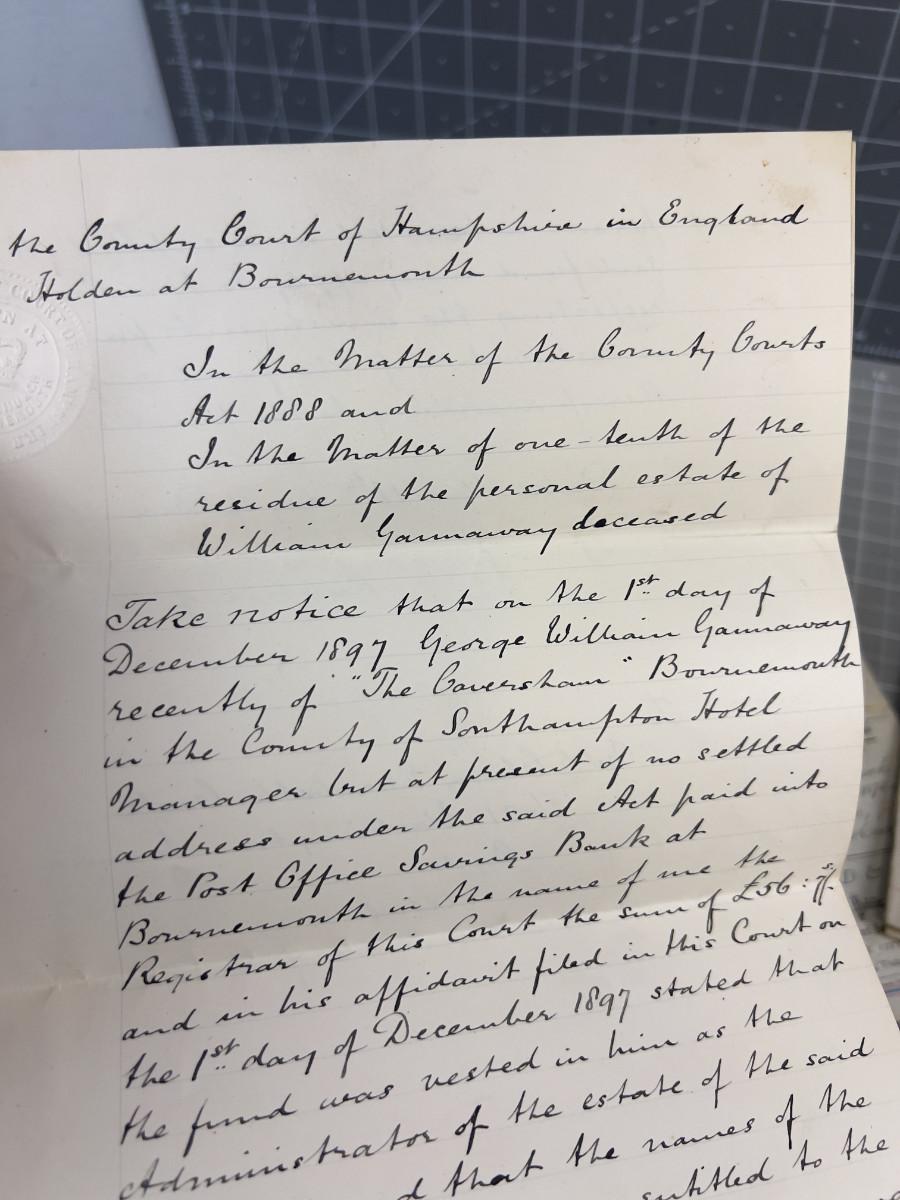 the County Court of Hampshire in England
Holden at Bournemouth
In the Matter of the County Courts
Act 1888 and
In the Matter of one-tenth of the
residue of the personal estate of
William Gannaway deceased
Take notice that on the 1st day of
December 1897 George William Gannaway
recently of "The Caversham" Bournemouth
in the County of Southampton Hotel
Manager but at present of no settled
address under the said Act paid into
the Post Office Savings Bank at
Bournemouth in the name of me the
Registrar of this Court the sum of £56:7s/.
and in his affidavit filed in this Court on
the 1st day of December 1897 stated that
the fund was vested in him as the
Administrator of the estate of the said
that the names of the
entitled to the